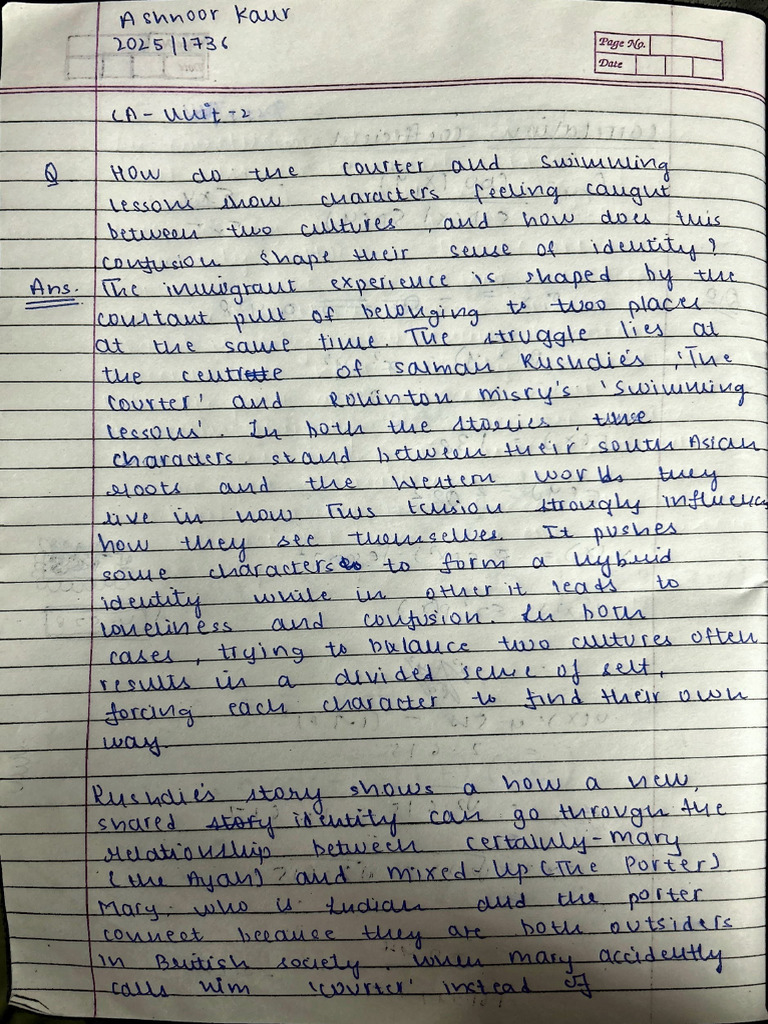 Ashnoor Kaur
2025/1736
Page No.
Date
CA - Unit - 2
Q How do the courter and swimming
lessons show characters feeling caught
between two cultures, and how does this
confusion shape their sense of identity?
Ans. The immigrant experience is shaped by the
constant pull of belonging to two places
at the same time. The struggle lies at
the centre of Salman Rushdie's 'The
courter' and Rohinton misry's 'swimming
lessons'. In both the stories, these
characters stand between their south Asian
roots and the Western worlds they
live in now. This tension strongly influence
how they see themselves. It pushes
some characters to form a hybrid
identity while in other it leads to
loneliness and confusion. In both
cases, trying to balance two cultures often
results in a divided sense of self,
forcing each character to find their own
way.
Rushdie's story shows a how a new,
shared story identity can go through the
relationship between certainly-mary
(the Ayah) and mixed-up (The Porter).
Mary, who is Indian and the porter
connect because they are both outsiders
in British society. when mary accidently
calls him 'courter' instead of